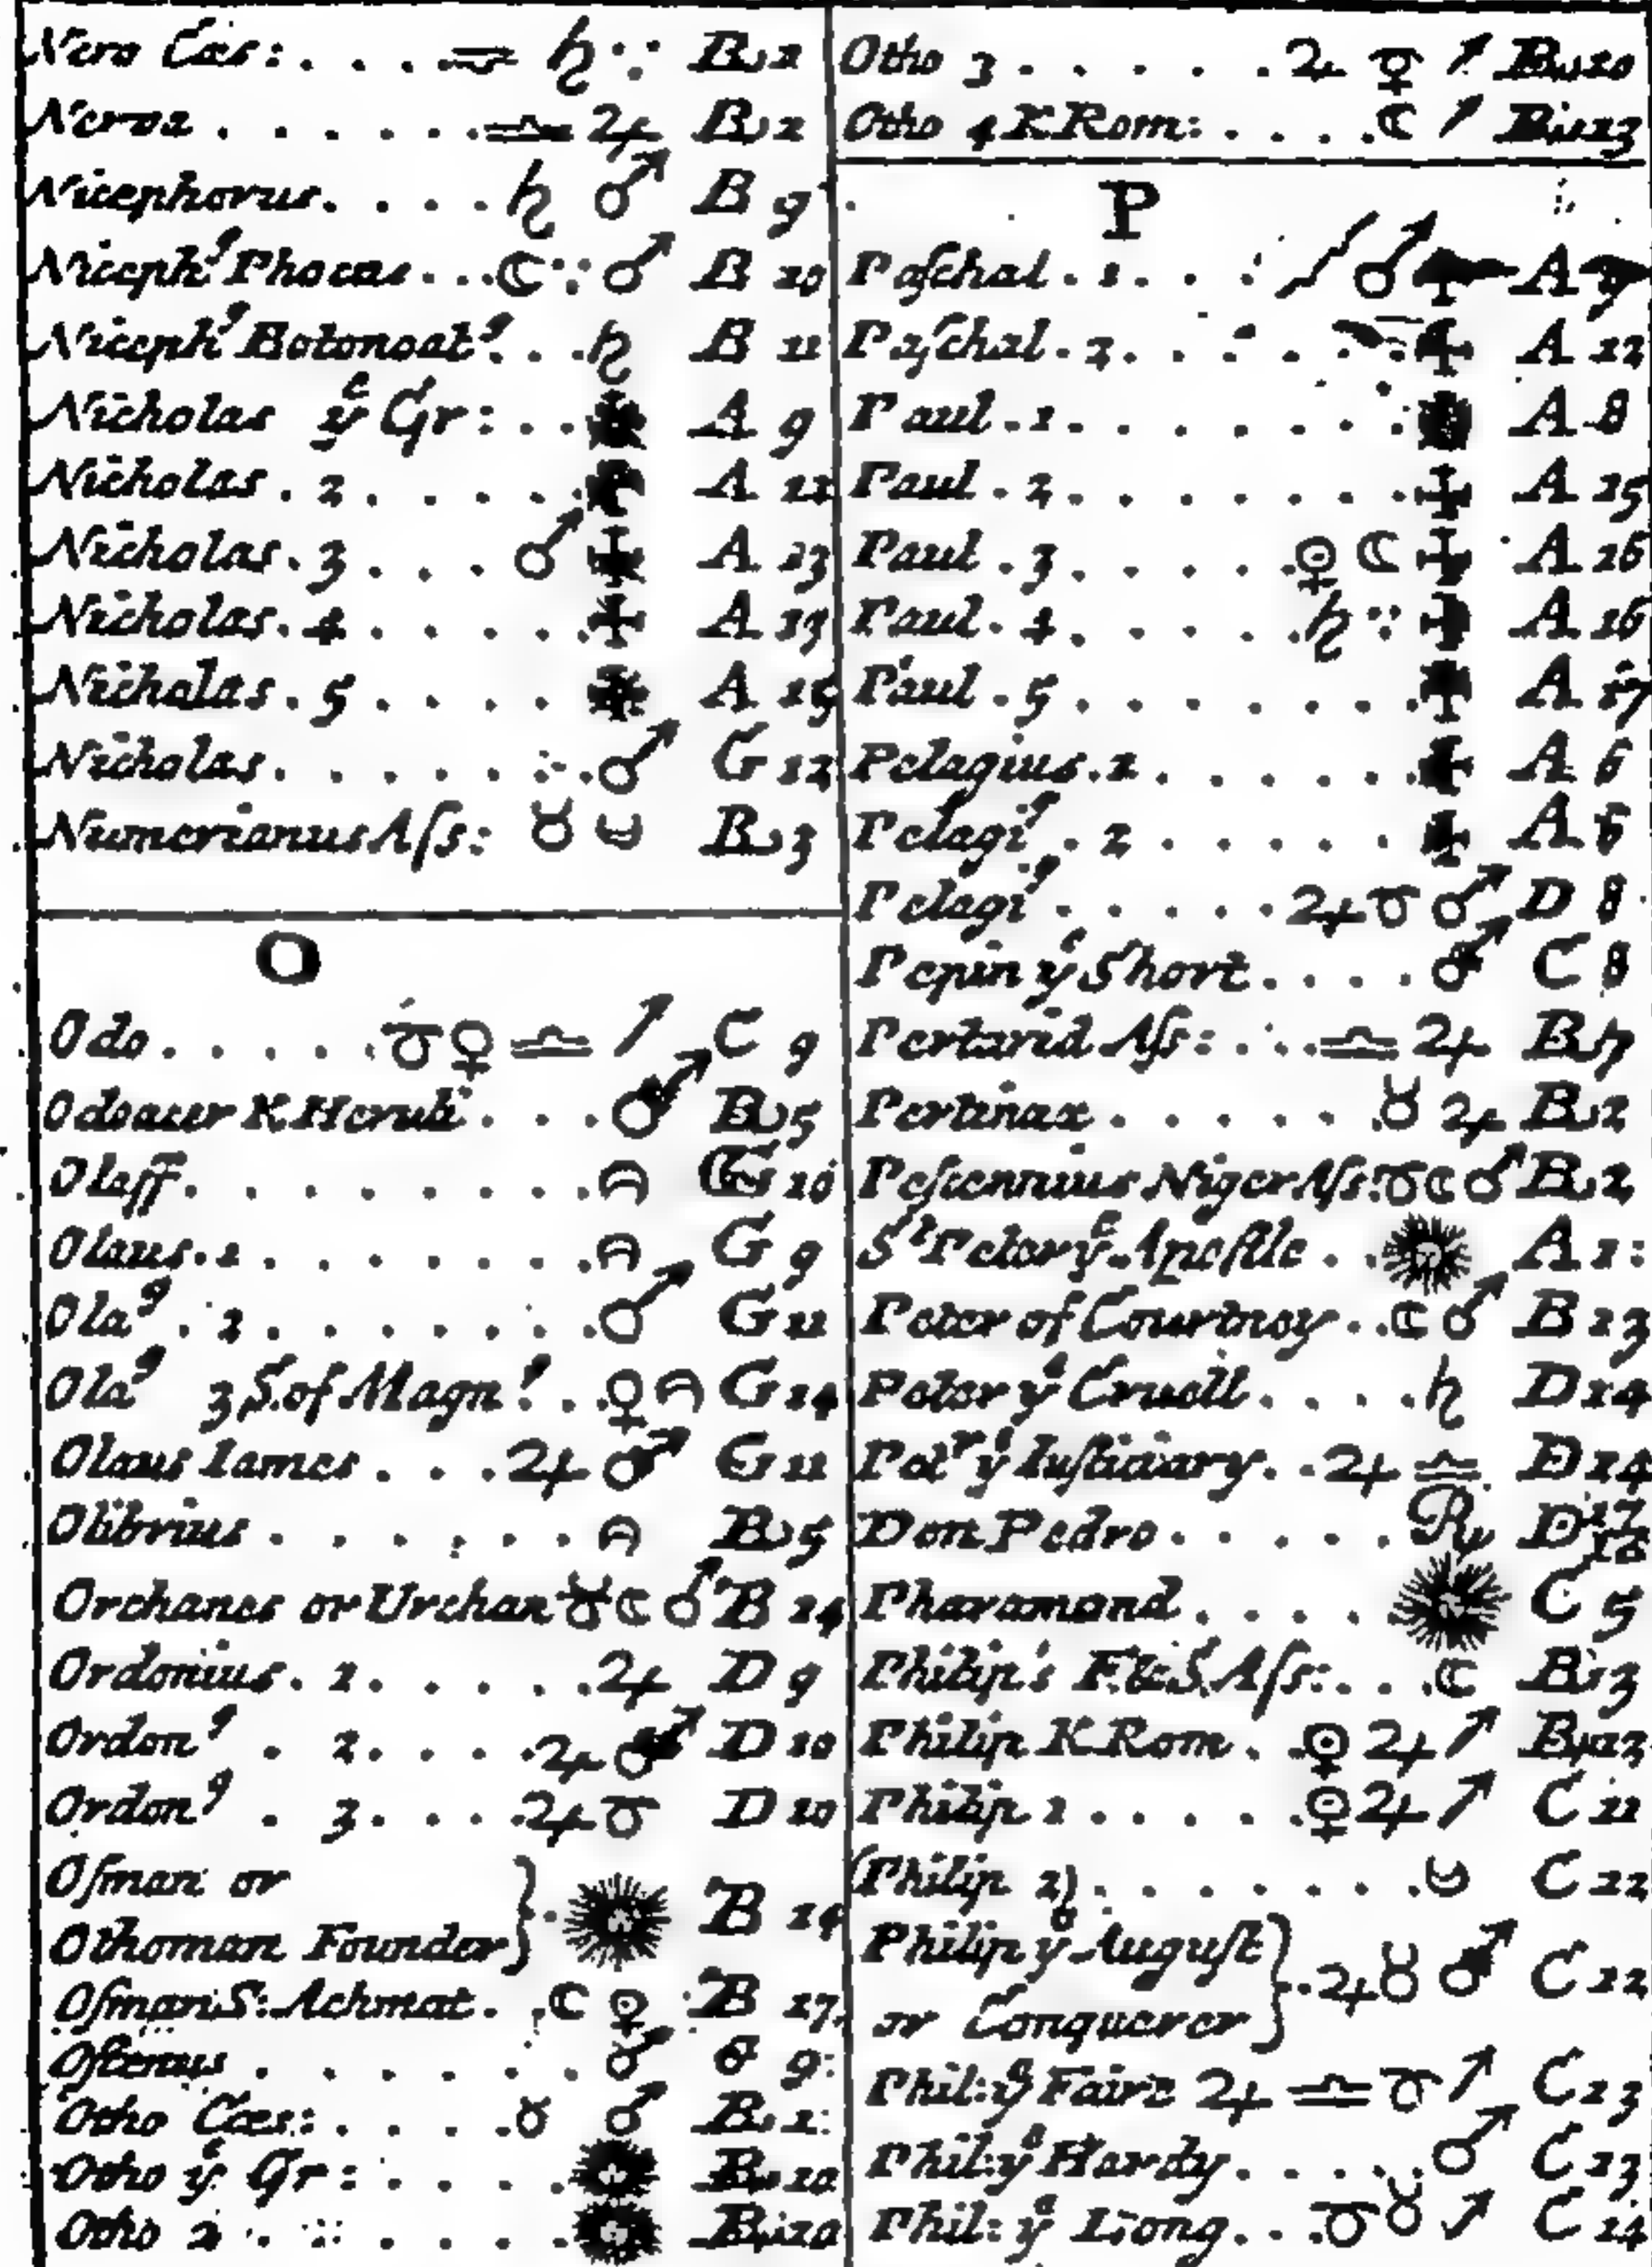 Nero Cæs: . . . . ♒ ♄ ∵ B 1
Nerva . . . . . . ♎ ♃ B 2
Nicephorus. . . . . ♄ ♂ B 9
Niceph⁹ Phocas . . . ☾ ∵ ♂ B 10
Niceph⁹ Botonoat⁹. . . ♄ B 11
Nicholas yᵉ Gr: . . . ✠ A 9
Nicholas . 2 . . . . . A 11
Nicholas . 3 . . . ♂ ✠ A 13
Nicholas . 4 . . . . . ✠ A 13
Nicholas . 5 . . . . ✠ A 15
Nicholas . . . . . . ♂ G 12
Numerianus Aſs: ♉ B 3
O
Odo . . . . . ♉ ♀ ♎ ↗ C 9
Odoacer K Heruli . . . ♂ B 5
Olaff . . . . . . . . G 10
Olaus . 1 . . . . . . . G 9
Ola⁹ . 2 . . . . . . . ♂ G 11
Ola⁹ 3 S. of Magn⁹ . . ♀ G 14
Olaus Iames . . . ♃ ♂ G 11
Olibrius . . . . . . B 5
Orchanes or Urchan ♉ ☾ ♂ B 14
Ordonius . 1 . . . . . ♃ D 9
Ordon⁹ . 2 . . . . ♃ ♂ D 10
Ordon⁹ . 3 . . . . ♃ ♉ D 10
Oſman or
Othoman Founder } . B 14
Oſman S: Achmat . . ☾ B 17
Oſtenus . . . . . . ♂ 9
Otho Cæs: . . . . ♉ ♂ B 1
Otho yᵉ Gr: . . . . B 10
Otho 2 . . . . . . B 10
Otho 3 . . . . . . ♃ ↗ B 10
Otho 4 K Rom: . . . . ☾ ↗ B 13
P
Paſchal . 1 . . . ♂ ✠ A 9
Paſchal . 2 . . . . . ✠ A 12
Paul . 1 . . . . . . . A 8
Paul . 2 . . . . . . . ✠ A 15
Paul . 3 . . . . . ☾ ✠ A 16
Paul . 4 . . . . . ♄ ∵ ✠ A 16
Paul . 5 . . . . . . . ✠ A 17
Pelagius . 1 . . . . . . ✠ A 6
Pelagi⁹ . 2 . . . . . ✠ A 6
Pelagi⁹ . . . . . ♃ ♉ ♂ D 8
Pepin yᵉ Short . . . . ♂ C 8
Pertarid Aſs: . . . ♎ ♃ B 7
Pertinax . . . . . . ♉ ♃ B 2
Peſcennius Niger Aſs: ♉ ☾ ♂ B 2
Sᵗ Peter yᵉ Apoſtle . . A 1:
Peter of Courtnoy . . ☾ ♂ B 13
Peter yᵉ Cruell . . . . ♄ D 14
Petʳ yᵉ Iuſticiary . . ♃ ♎ D 14
Don Pedro . . . . . ℞ D 17
Pharamond . . . . C 5
Philip's F. & S. Aſs: . . . ☾ B 3
Philip K Rom . . ♃ ↗ B 12
Philip 1 . . . . . ♃ ↗ C 11
(Philip 2) . . . . . . . C 12
Philip yᵉ Auguſt
or Conquerer } . ♃ ♉ ♂ C 12
Phil: yᵉ Faire ♃ ♎ ♉ ↗ C 13
Phil: yᵉ Hardy . . . . . ♂ C 13
Phil: yᵉ Long . . . ♉ ♉ ↗ C 14